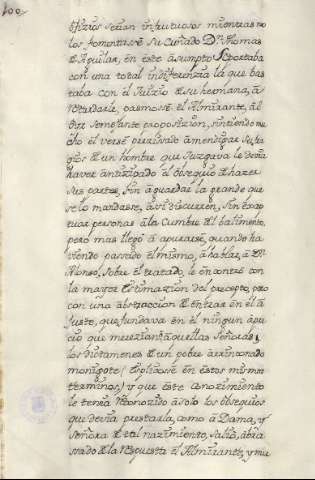 100
oficios serian infrutuosos mientras no
los fomentasse su Cuñado Dn. Thomas
de Aguilar, en este asumpto se portaba
con una total indiferenzia la que bas
taba con el Juizio de su hermana, a
retardarla, pasmose el Almirante, al
oir semejante proposizion, sintiendo mu
cho el verse prezisado a mendigar sufra
gios de un hombre que Juzgava le devia
haver antizipado el obsequio de hazer
sus partes, sin aguardar la grande que
se lo mandasse, assi discurren, sin
personas a la Cumbre del balimento,
pero mas llegó a apurarse, quando ha
viendo passado el mismo, a hablar, a Dn.
Alonso, sobre el tratado, le encontró con
la mayor estimazion del precepto, pero
con una abstraccion de entrar en el a
Juste, que fundava en el ningun apre
cio que merezian a aquellas Señoras,
los dictamenes de un pobre arrinconado
monigote (esplicose en estos mismos
terminos) y que este conozimiento
le tenia reconozido a solo los obsequios
que devia prestarla, como a Dama, y
Señora de tal nazimiento, salió, abra
sado de la respuesta el Almirante, y mu